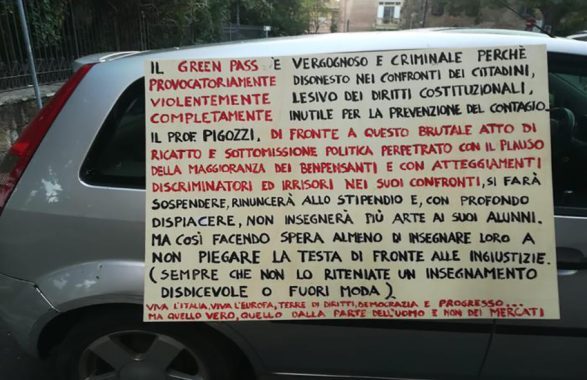 IL GREEN PASS È VERGOGNOSO E CRIMINALE PERCHÈ
PROVOCATORIAMENTE DISONESTO NEI CONFRONTI DEI CITTADINI,
VIOLENTEMENTE LESIVO DEI DIRITTI COSTITUZIONALI,
COMPLETAMENTE INUTILE PER LA PREVENZIONE DEL CONTAGIO.
IL PROF PIGOZZI, DI FRONTE A QUESTO BRUTALE ATTO DI
RICATTO E SOTTOMISSIONE POLITICA PERPETRATO CON IL PLAUSO
DELLA MAGGIORANZA DEI BENPENSANTI E CON ATTEGGIAMENTI
DISCRIMINATORI ED IRRISORI NEI SUOI CONFRONTI, SI FARÀ
SOSPENDERE, RINUNCERÀ ALLO STIPENDIO E, CON PROFONDO
DISPIACERE, NON INSEGNERÀ PIÙ ARTE AI SUOI ALUNNI.
MA COSÌ FACENDO SPERA ALMENO DI INSEGNARE LORO A
NON PIEGARE LA TESTA DI FRONTE ALLE INGIUSTIZIE.
(SEMPRE CHE NON LO RITENIATE UN INSEGNAMENTO
DISDICEVOLE O FUORI MODA).
VIVA L'ITALIA, VIVA L'EUROPA, TERRE DI DIRITTI, DEMOCRAZIA E PROGRESSO...
MA QUELLO VERO, QUELLO DALLA PARTE DELL'UOMO E NON DEI MERCATI